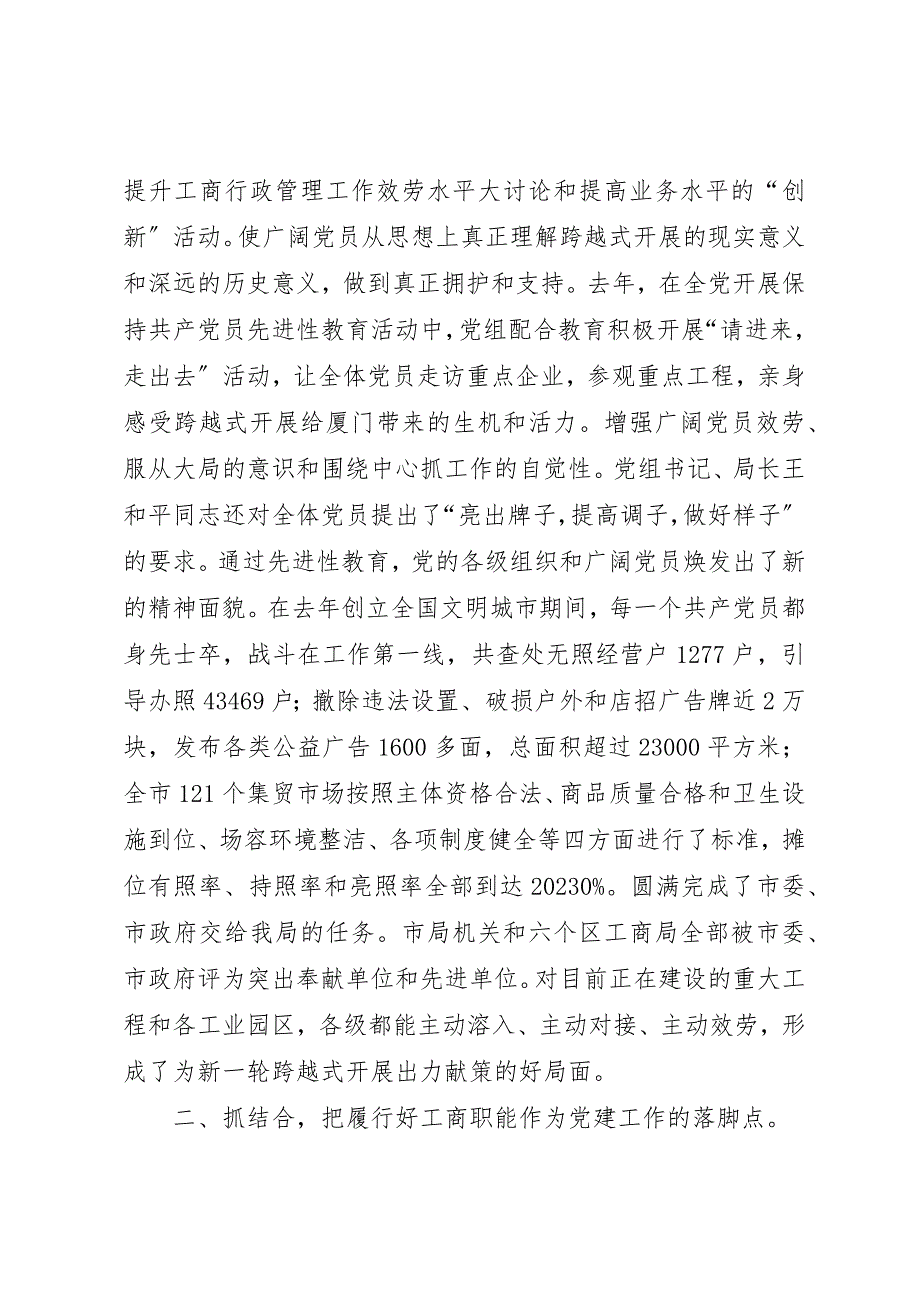 提升工商行政管理工作效劳水平大讨论和提高业务水平的“创
新〞活动。使广阔党员从思想上真正理解跨越式开展的现实意义
和深远的历史意义，做到真正拥护和支持。去年，在全党开展保
持共产党员先进性教育活动中，党组配合教育积极开展“请进来，
走出去〞活动，让全体党员走访重点企业，参观重点工程，亲身
感受跨越式开展给厦门带来的生机和活力。增强广阔党员效劳、
服从大局的意识和围绕中心抓工作的自觉性。党组书记、局长王
和平同志还对全体党员提出了“亮出牌子,提高调子,做好样子〞
的要求。通过先进性教育，党的各级组织和广阔党员焕发出了新
的精神面貌。在去年创立全国文明城市期间，每一个共产党员都
身先士卒，战斗在工作第一线，共查处无照经营户 1277 户，引
导办照 43469 户；撤除违法设置、破损户外和店招广告牌近 2 万
块，发布各类公益广告 1600 多面，总面积超过 23000 平方米；
全市 121 个集贸市场按照主体资格合法、商品质量合格和卫生设
施到位、场容环境整洁、各项制度健全等四方面进行了标准，摊
位有照率、持照率和亮照率全部到达 20230%。圆满完成了市委、
市政府交给我局的任务。市局机关和六个区工商局全部被市委、
市政府评为突出奉献单位和先进单位。对目前正在建设的重大工
程和各工业园区，各级都能主动溶入、主动对接、主动效劳，形
成了为新一轮跨越式开展出力献策的好局面。
二、抓结合，把履行好工商职能作为党建工作的落脚点。